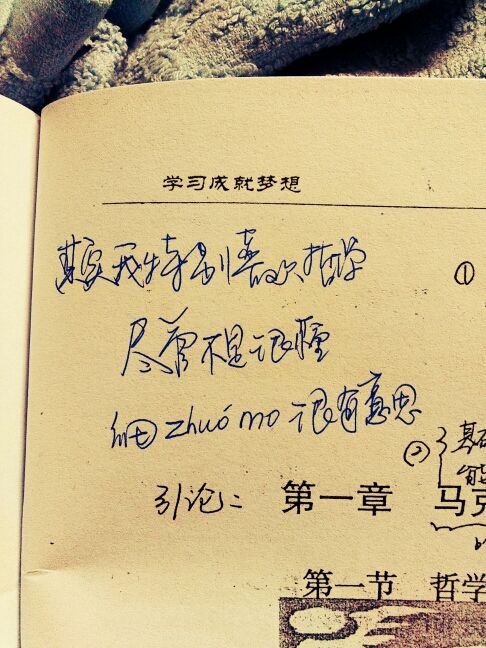 学习成就梦想
其实我特别喜欢哲学
①
尽管不是很懂
细zhuó mo 很有意思
②
引论：第一章 马克
第一节 哲学